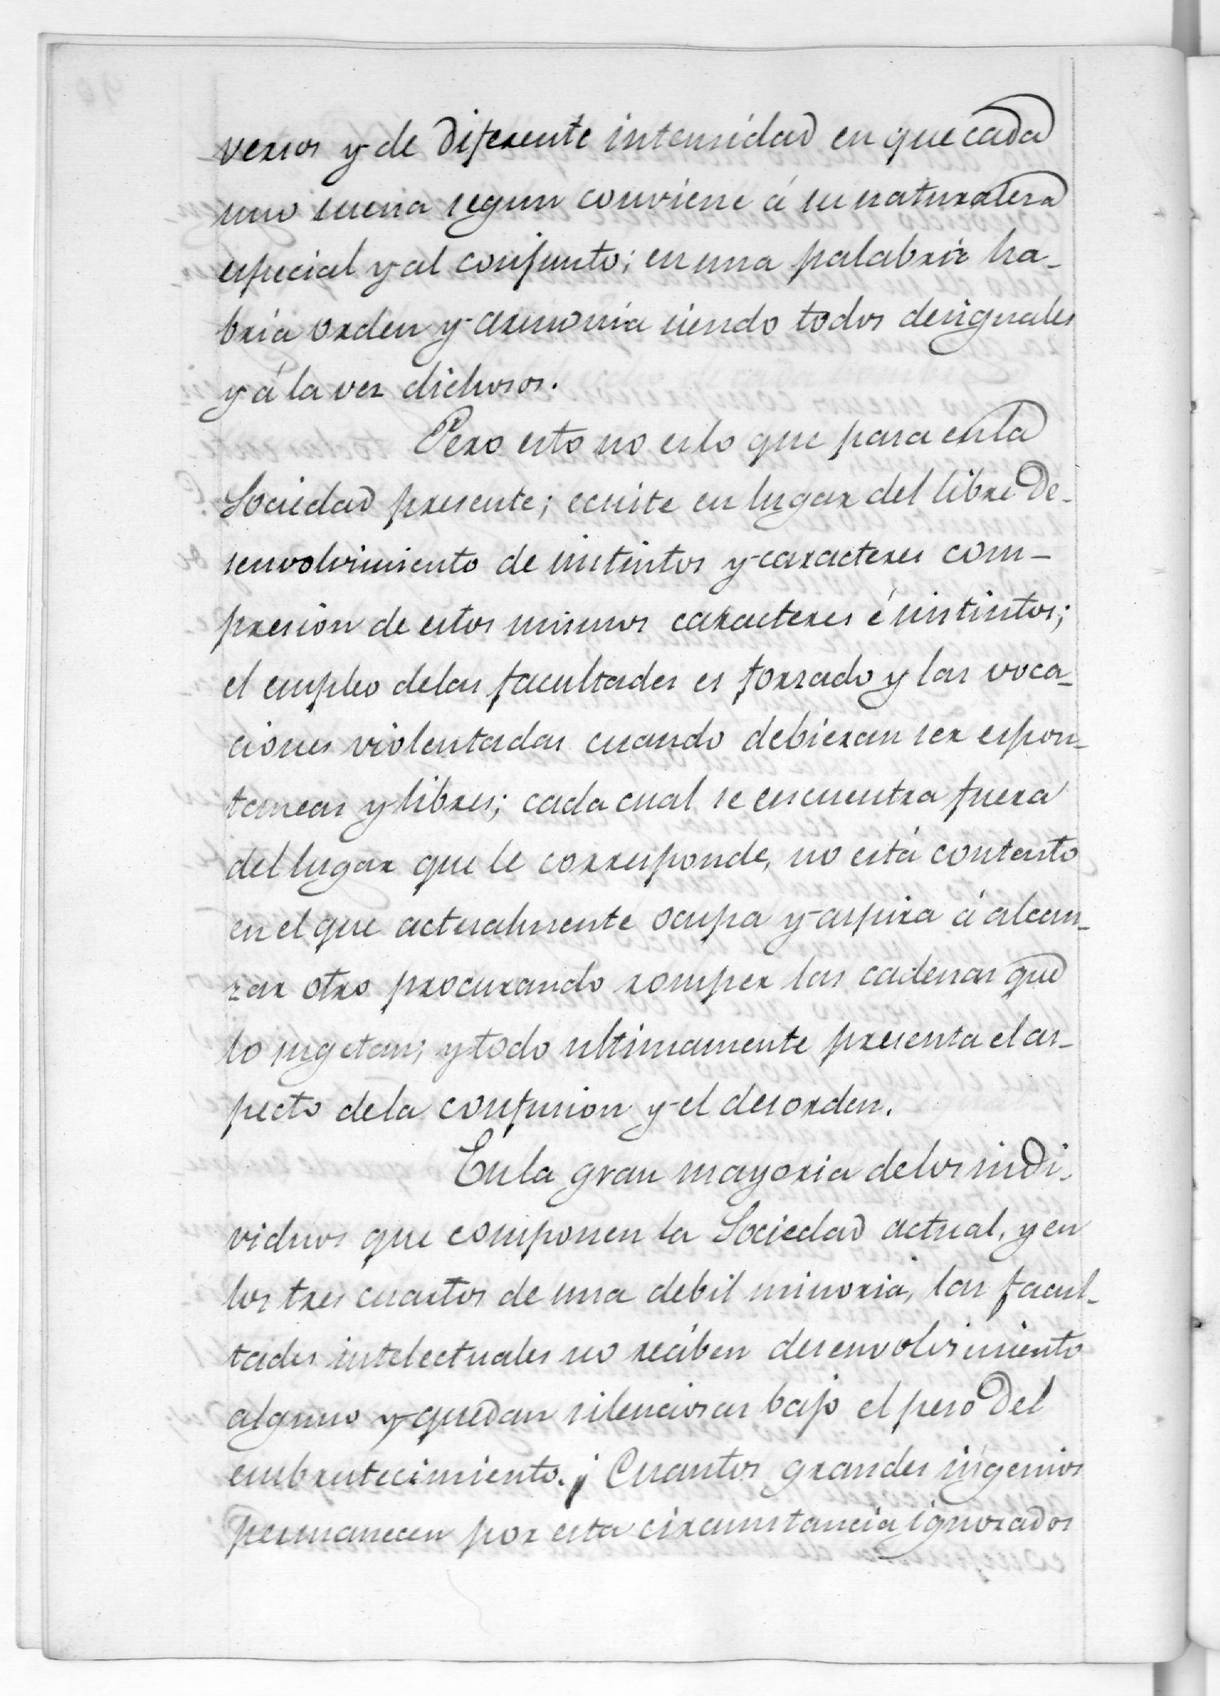 versos y de diferente intensidad en que cada
uno suena segun conviene á su naturaleza
especial y al conjunto; en una palabra ha-
bria orden y armonia siendo todos desiguales
y á la vez dichosos.
Pero esto no es lo que pasa en la
Sociedad presente; ecsiste en lugar del libre de-
senvolvimiento de instintos y caracteres com-
presion de estos mismos caracteres é instintos;
el empleo de las facultades es forzado y las voca-
ciones violentadas cuando debieran ser espon-
taneas y libres; cada cual se encuentra fuera
del lugar que le corresponde, no está contento
en el que actualmente ocupa y aspira á alcan-
zar otro procurando romper las cadenas que
lo sugetan; y todo ultimamente presenta el as-
pecto de la confusion y el desorden.
En la gran mayoria de los indi-
viduos que componen la Sociedad actual, y en
los tres cuartos de una debil minoria, las facul-
tades intelectuales no reciben desenvolvimiento
alguno y quedan silenciosas bajo el peso del
embrutecimiento. ¡Cuantos grandes ingenios
permanecen por esta circunstancia ignorados